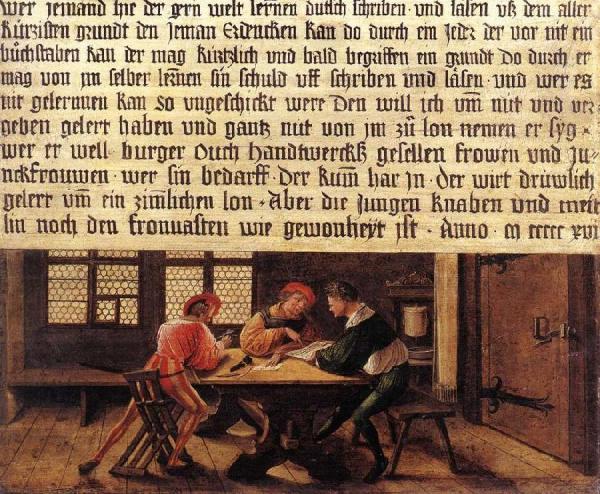 wer jemand hie der gern welt lernen dütsch schriben · vnd läsen vß dem aller
kürtzisten grundt den Jeman Erdencken kan do durch ein Jeder der vor nit ein
büchstaben kan der mag kürtzlich vnd bald begriffen ein grundt Do durch er
mag von jm selber lernen sin schuld vff schriben vnd läsen · vnd wer es
nit gelernnen kan so vngeschickt were Den will ich vm̄ nüt vnd ver-
geben gelert haben vnd gantz nüt von jm zů lon nemen er syg ·
wer er well burger ouch handtwercks gesellen frowen vnd Ju-
nckfrouwen · wer sin bedarff · Der kum̄ har jn · der wirt drüwlich
gelert vm̄ ein zimlichen lon · Aber die Jungen knaben vnd meit
lin noch den fronuasten wie gewonheyt ist · Anno · m ccccc xvi